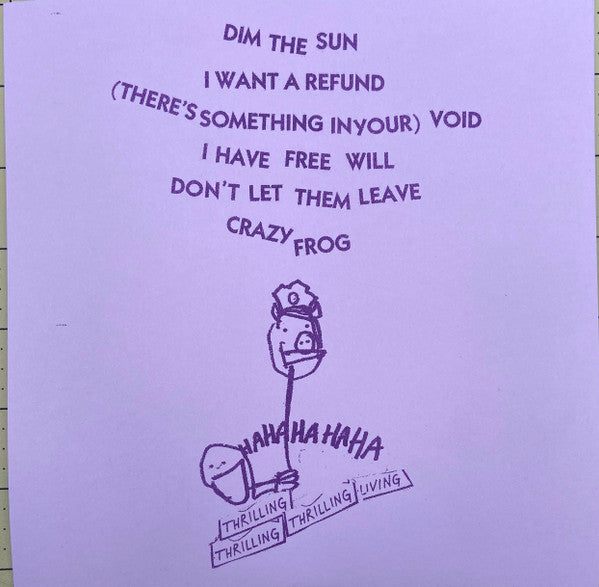 DIM THE SUN
I WANT A REFUND
(THERE'S SOMETHING IN YOUR) VOID
I HAVE FREE WILL
DON'T LET THEM LEAVE
CRAZY FROG
HAHAHAHAHA
THRILLING THRILLING LIVING
THRILLING